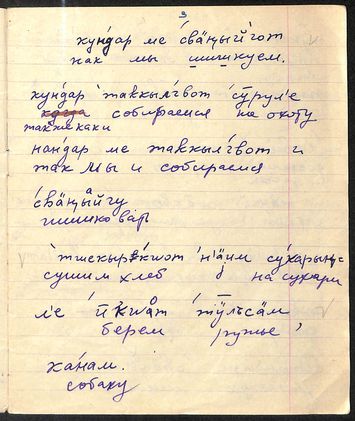 3
кунда́р ме сва́ӊый'гот
как мы шишкуем.
кунда́р таккылгвот сӯрул'е
собираемся на охоту
также как и
нандар ме таккылгвот и
так мы и собираемся
сва́ӊыйгу
шишковать
тшекырэ́квот на̄им су́харын
сушим хлеб на сухари
л'е ӣквот тӱльсӓм
берем ружье,
ка́нам.
собаку